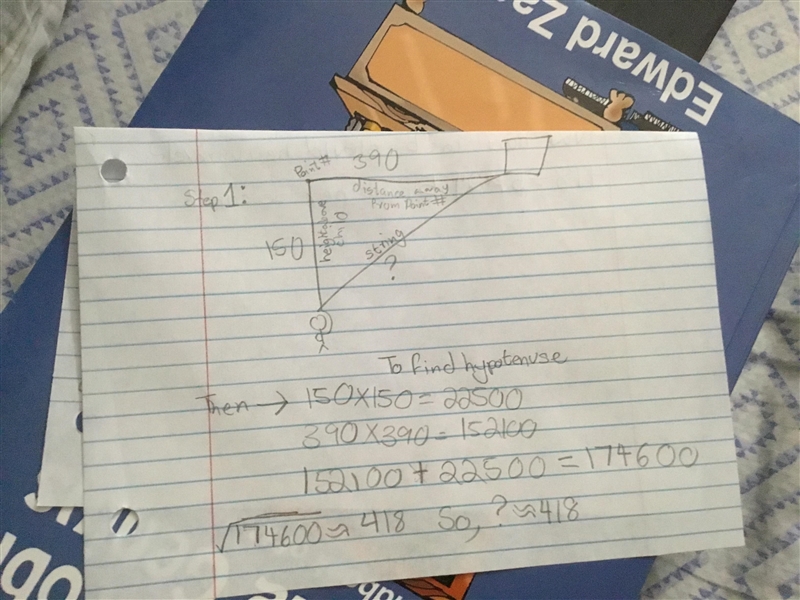 Edward Za
Point # 390
Step 1:
distance away
from Point #
height above
150
string
?
To find hypotenuse
Then → 150×150=22500
390×390=152100
152100+22500=174600
√174600≈418 So, ?≈418